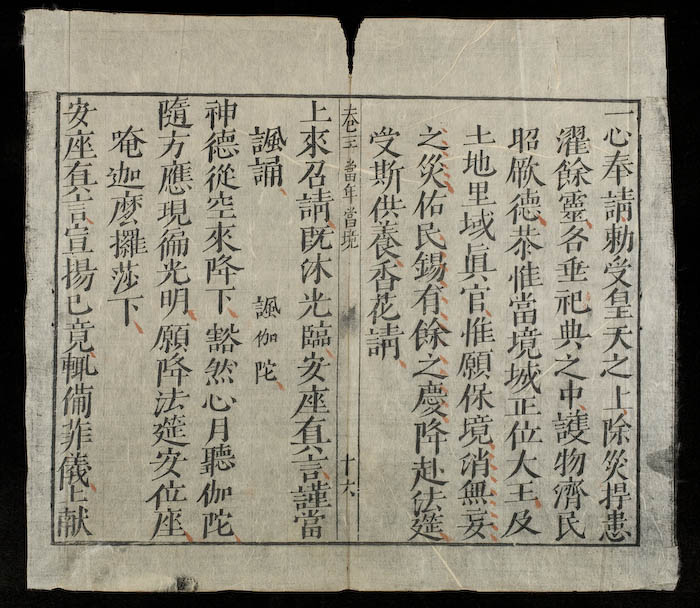 一心奉請勅受皇天之上除災捍患
濯餘靈各垂祀典之中護物濟民
昭厥德恭惟當境城正位大王及
土地里域眞官惟願保境消無妄
之災佑民錫有餘之慶降赴法筵
受斯供養香花請
卷三 當年當境 十六
上來召請旣沐光臨安座真言謹當
諷誦 諷伽陀
神德從空來降下豁然心月聽伽陀
隨方應現徧光明願降法筵安位座
唵迦麽攞莎下
安座真言宣揚已竟輒備菲儀上献